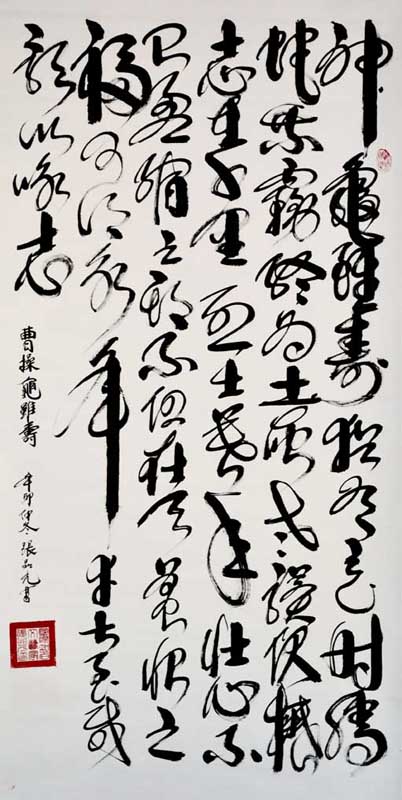 神龜雖壽猶有竟時騰
蛇乘霧終為土灰老驥伏櫪
志在千里烈士暮年壯心不
已盈縮之期不但在天養怡之
福可得永年幸甚至哉
歌以詠志
曹操龜雖壽
辛卯仲冬張品元書